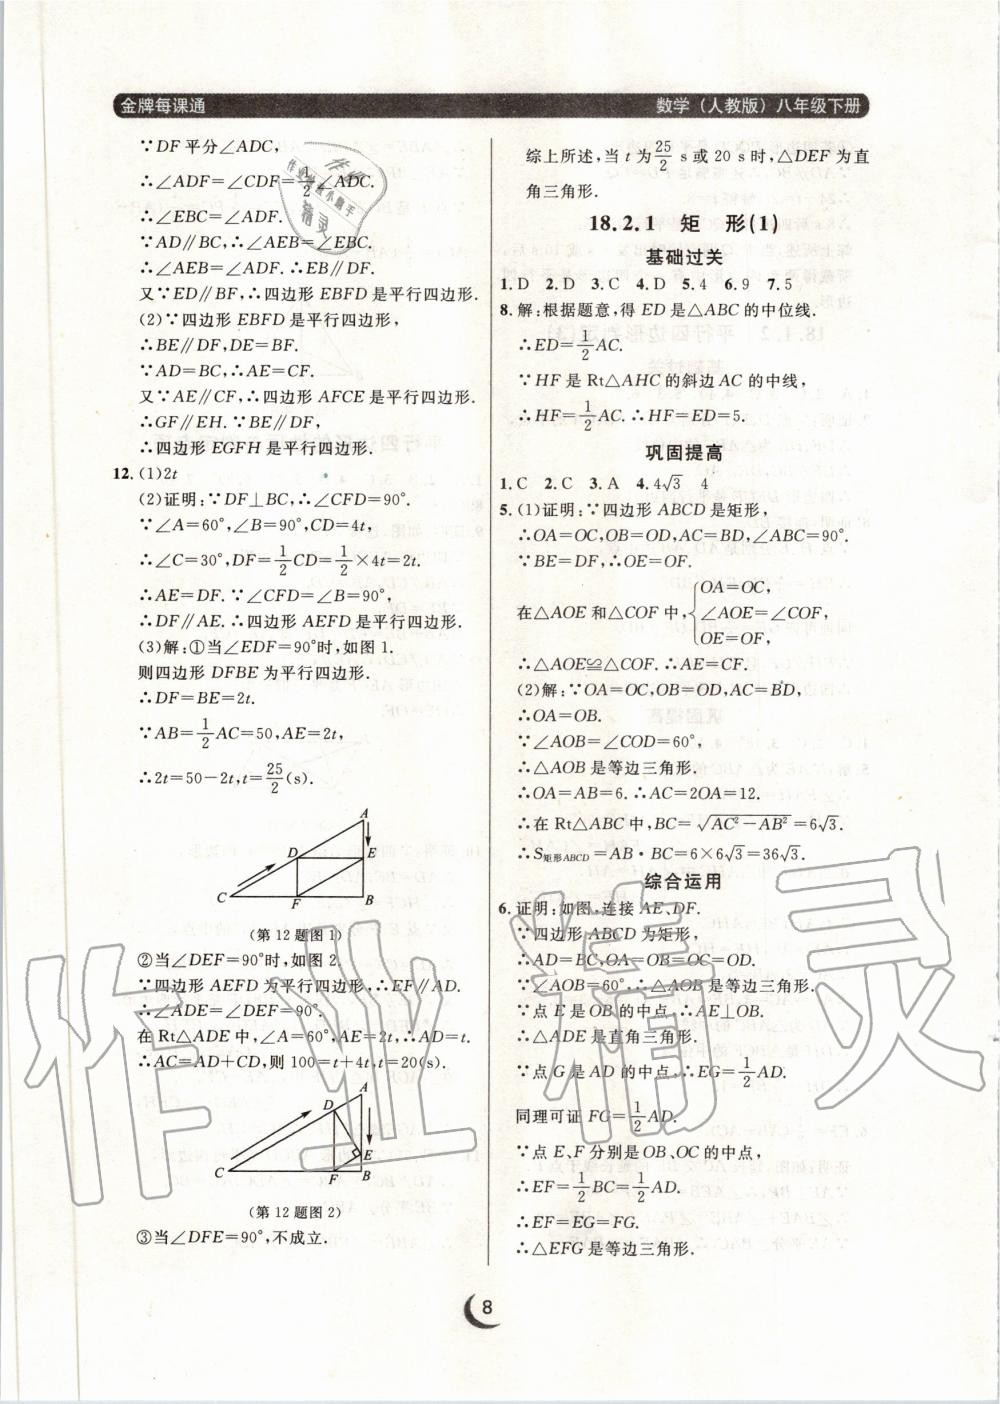 金牌每课通
数学（人教版）八年级下册
∵DF平分∠ADC,
∴∠ADF=∠CDF=1/2∠ADC.
∴∠EBC=∠ADF.
∵AD∥BC,∴∠AEB=∠EBC.
∴∠AEB=∠ADF.∴EB∥DF.
又∵ED∥BF,∴四边形EBFD是平行四边形.
(2)∵四边形EBFD是平行四边形,
∴BE∥DF,DE=BF.
∵AD=BC,∴AE=CF.
又∵AE∥CF,∴四边形AFCE是平行四边形.
∴GF∥EH.∵BE∥DF,
∴四边形EGFH是平行四边形.
12.(1)2t
(2)证明:∵DF⊥BC,∴∠CFD=90°.
∵∠A=60°,∠B=90°,CD=4t,
∴∠C=30°,DF=1/2CD=1/2×4t=2t.
∴AE=DF.∵∠CFD=∠B=90°,
∴DF∥AE.∴四边形AEFD是平行四边形.
(3)解:①当∠EDF=90°时,如图1.
则四边形DFBE为平行四边形.
∴DF=BE=2t.
∵AB=1/2AC=50,AE=2t,
∴2t=50-2t,t=25/2(s).
A
D
E
C
F
B
(第12题图1)
②当∠DEF=90°时,如图2.
∵四边形AEFD为平行四边形,∴EF∥AD.
∴∠ADE=∠DEF=90°.
在Rt△ADE中,∠A=60°,AE=2t,∴AD=t.
∴AC=AD+CD,则100=t+4t,t=20(s).
A
D
E
C
F
B
(第12题图2)
③当∠DFE=90°,不成立.
综上所述,当t为25/2 s或20 s时,△DEF为直
角三角形.
18.2.1 矩 形(1)
基础过关
1.D 2.D 3.C 4.D 5.4 6.9 7.5
8.解:根据题意,得ED是△ABC的中位线.
∴ED=1/2AC.
∵HF是Rt△AHC的斜边AC的中线,
∴HF=1/2AC.∴HF=ED=5.
巩固提高
1.C 2.C 3.A 4.4√3 4
5.(1)证明:∵四边形ABCD是矩形,
∴OA=OC,OB=OD,AC=BD,∠ABC=90°.
∵BE=DF,∴OE=OF.
在△AOE和△COF中,{OA=OC,
∠AOE=∠COF,
OE=OF,
∴△AOE≌△COF.∴AE=CF.
(2)解:∵OA=OC,OB=OD,AC=BD,
∴OA=OB.
∵∠AOB=∠COD=60°,
∴△AOB是等边三角形.
∴OA=AB=6.∴AC=2OA=12.
∴在Rt△ABC中,BC=√(AC²-AB²)=6√3.
∴S矩形ABCD=AB·BC=6×6√3=36√3.
综合运用
6.证明:如图,连接AE、DF.
∵四边形ABCD为矩形,
∴AD=BC,OA=OB=OC=OD.
∵∠AOB=60°,∴△AOB是等边三角形.
∵点E是OB的中点,∴AE⊥OB.
∴△ADE是直角三角形.
∵点G是AD的中点,∴EG=1/2AD.
同理可证FG=1/2AD.
∵点E、F分别是OB、OC的中点,
∴EF=1/2BC=1/2AD.
∴EF=EG=FG.
∴△EFG是等边三角形.
8
作业精灵